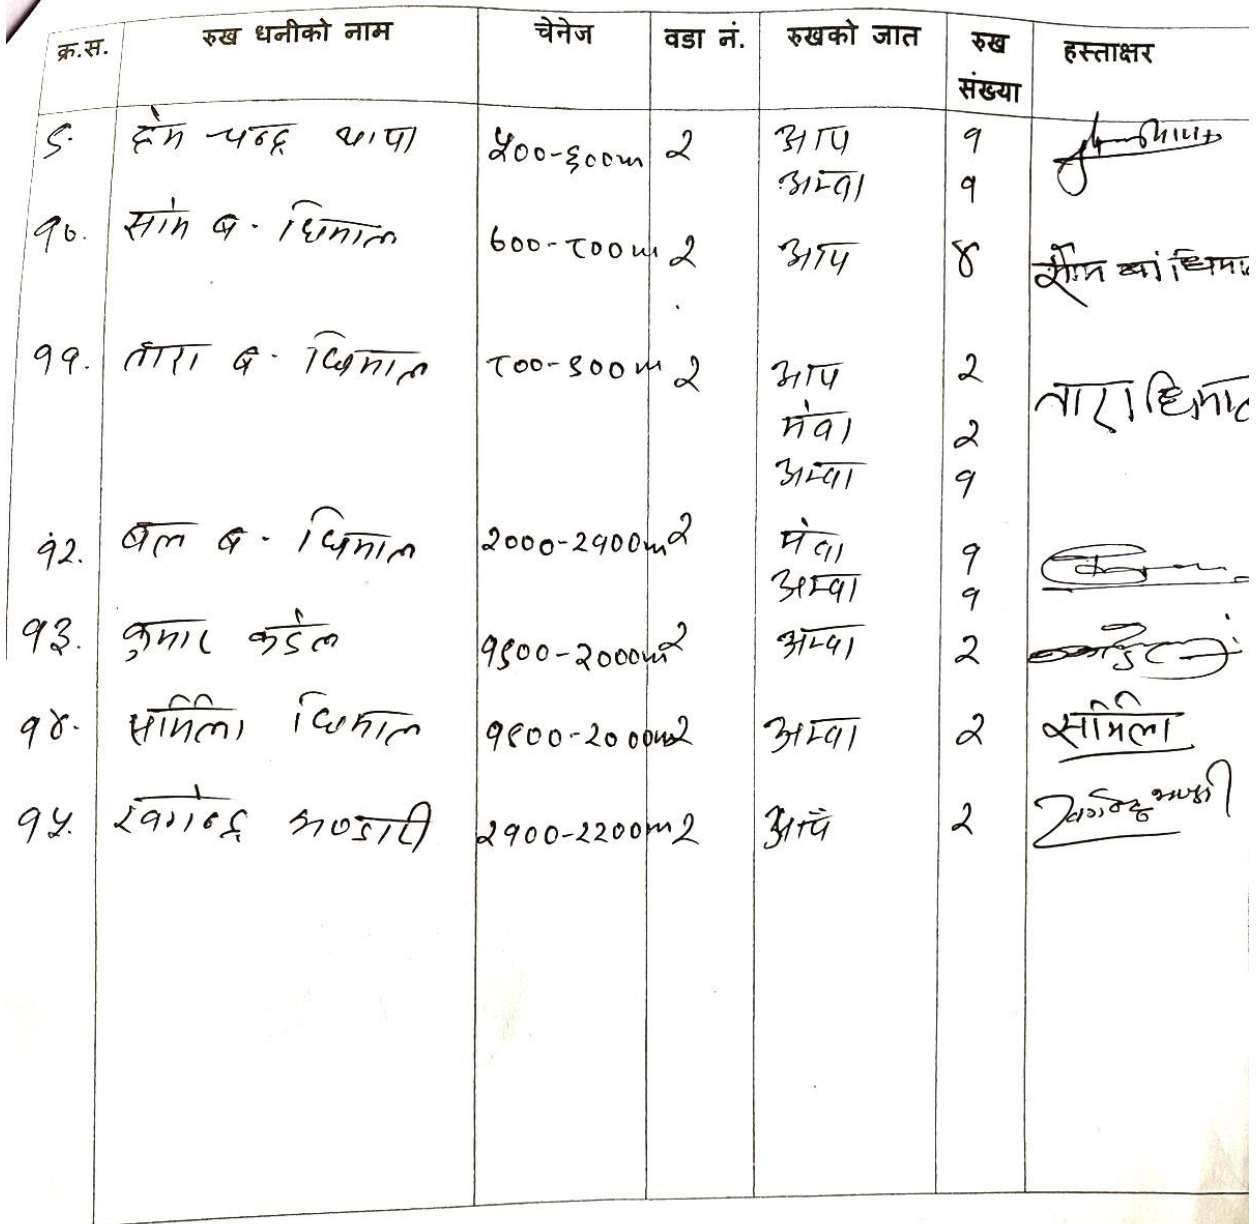 क्र.स. रुख धनीको नाम चेनेज वडा नं. रुखको जात रुख संख्या हस्ताक्षर
९. हेम चन्द्र थापा ५००-६००m २ आप १
अम्बा १
१०. सोम ब. धिमाल ७००-८००m २ आप ४ सोम ब धिमाल
११. तारा ब. धिमाल ८००-९००m २ आप २ तारा धिमाल
मेवा २
अम्बा १
१२. बल ब. धिमाल २०००-२१००m २ मेवा १
अम्बा १
१३. कुमार कडेल १९००-२०००m २ अम्बा २
१४. समिला धिमाल १९००-२०००m २ अम्बा २ समिला
१५. खगेन्द्र भण्डारी २१००-२२००m २ आँप २ खगेन्द्र भण्डारी